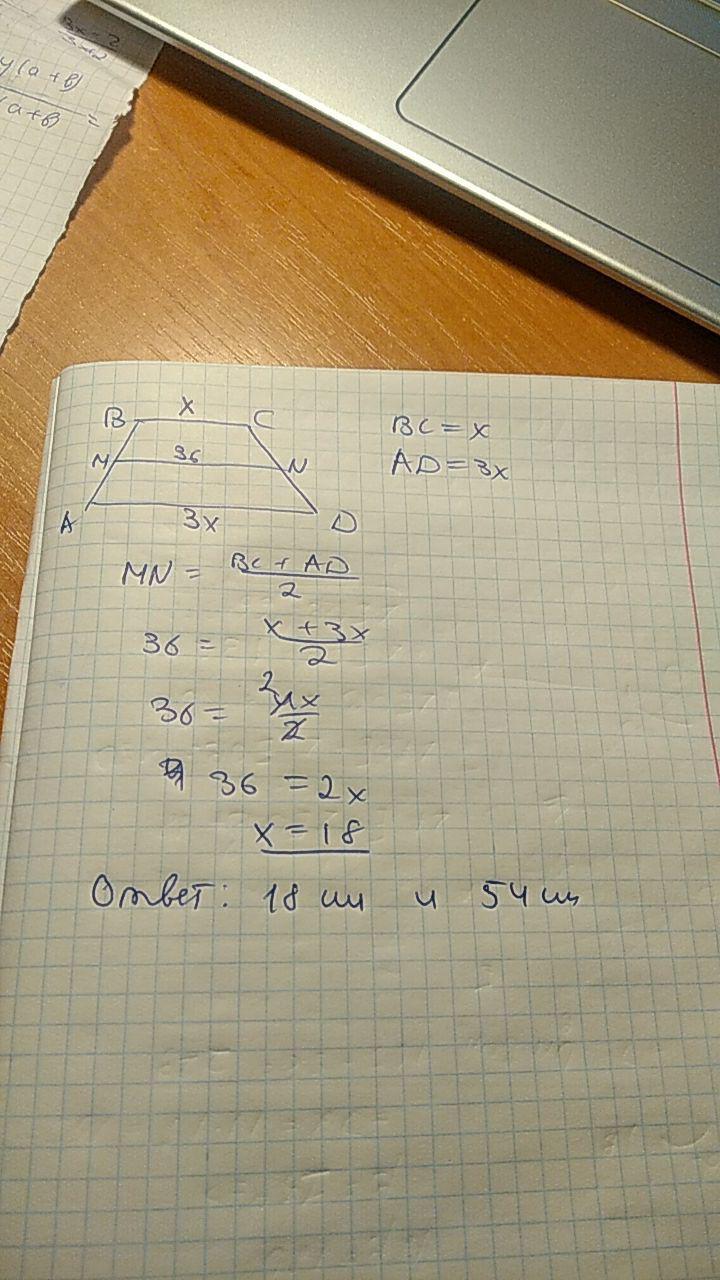 3x-2
y(a+b)
(a+b) =
B x C
BC = x
M 36 N
AD = 3x
A 3x D
MN = BC + AD / 2
36 = x + 3x / 2
36 = 2 4x / 2
36 = 2x
x = 18
Ответ: 18 см и 54 см